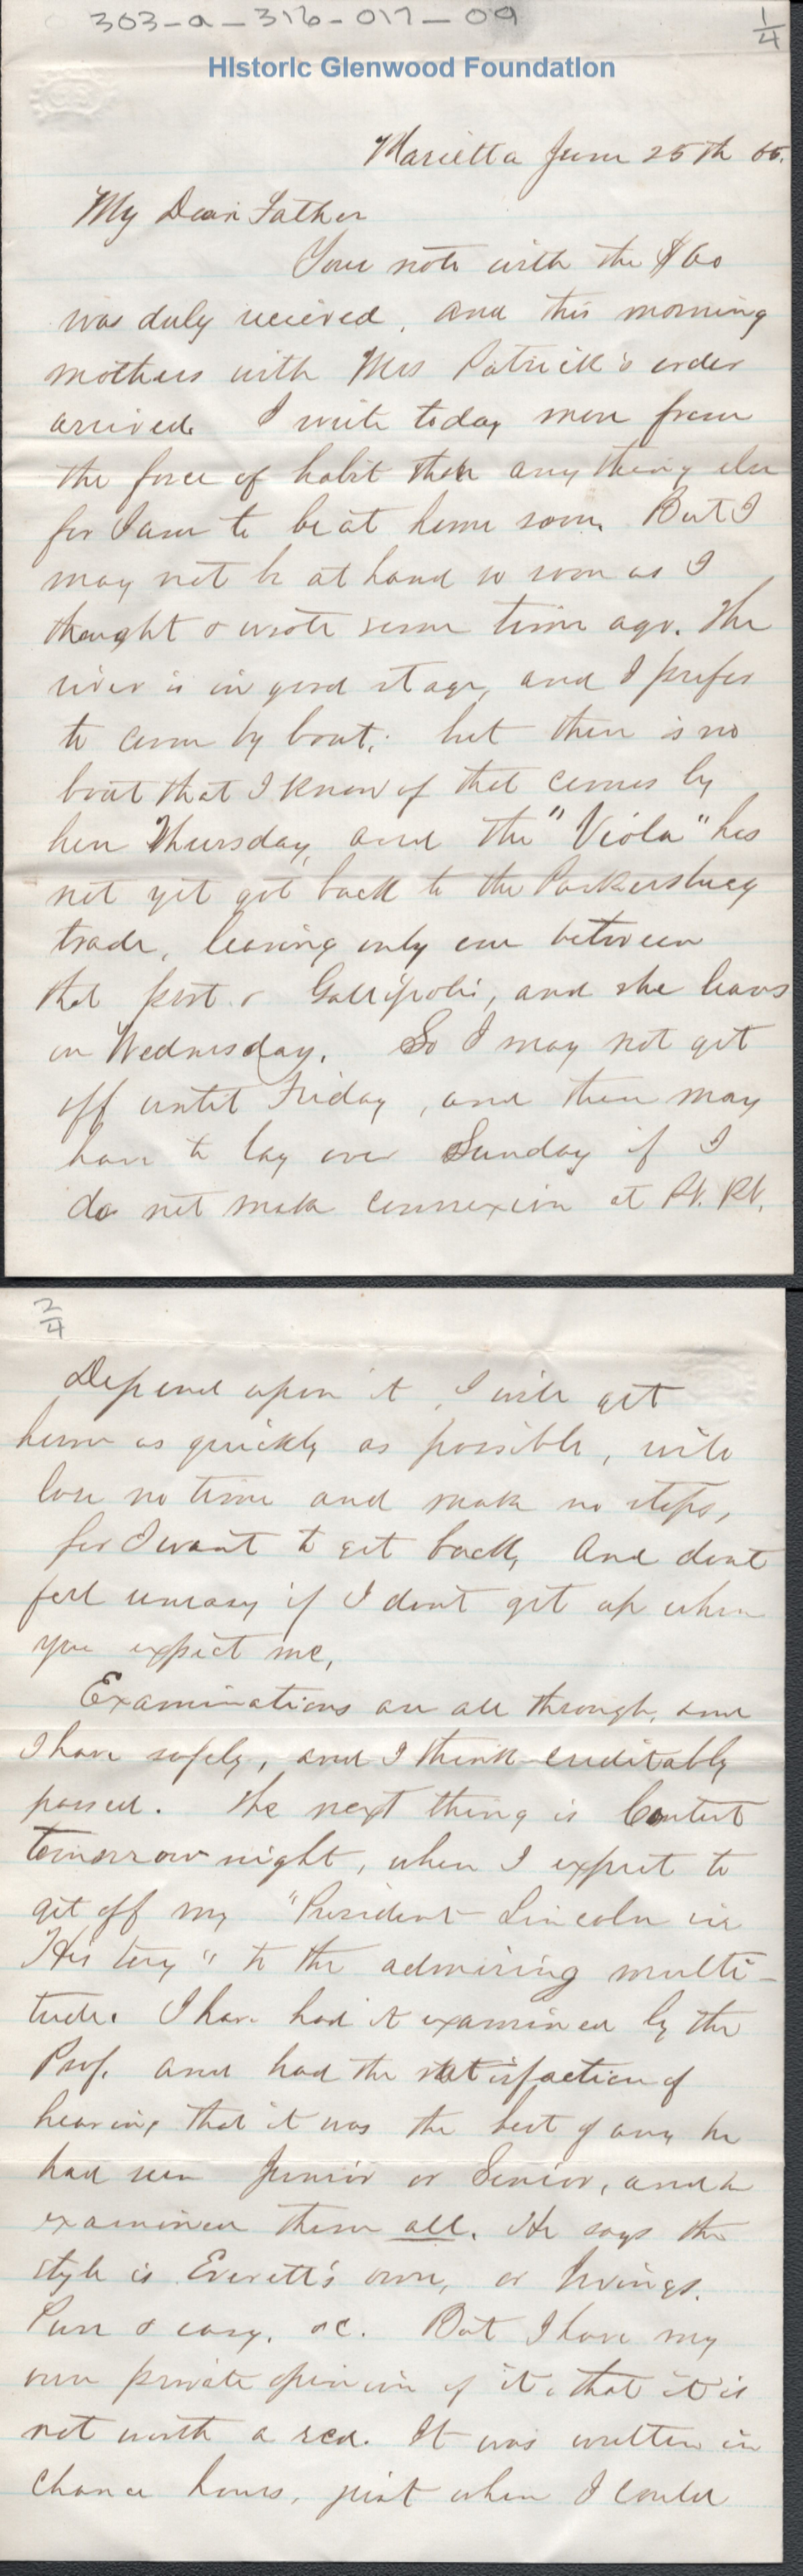 303-a-316-017-09
1/4
Historic Glenwood Foundation
Marietta June 25th 65.
My Dear Father
Your note with the $60
was duly recieved, and this morning
mothers with Mrs Patrick's order
arrived. I write today more from
the force of habit than any thing else
for I am to be at home soon. But I
may not be at hand so soon as I
thought & wrote some time ago. The
river is in good stage, and I prefer
to come by boat; but there is no
boat that I know of that comes by
here Thursday, and the "Viola" has
not yet got back to the Parkersburg
trade, leaving only one between
that port & Gallipolis, and she leaves
on Wednesday. So I may not get
off until Friday, and then may
have to lay over Sunday if I
do not make connexion at Pt. Pt.
2/4
Depend upon it, I will get
home as quickly as possible, will
lose no time and make no stops,
for I want to get back, and dont
feel uneasy if I dont get up when
you expect me,
Examinations are all through, and
I have safely, and I think creditably
passed. The next thing is Contest
tomorrow night, when I expect to
get off my "President Lincoln in
History" to the admiring multi-
tude. I have had it examined by the
Prof. and had the satisfaction of
hearing that it was the best of any he
had seen Junior or Senior, and he
examined them all. He says the
style is Everett's own, or Irvings.
Pure & easy, &c. But I have my
own private opinion of it, that it is
not worth a red. It was written in
chance hours, just when I could